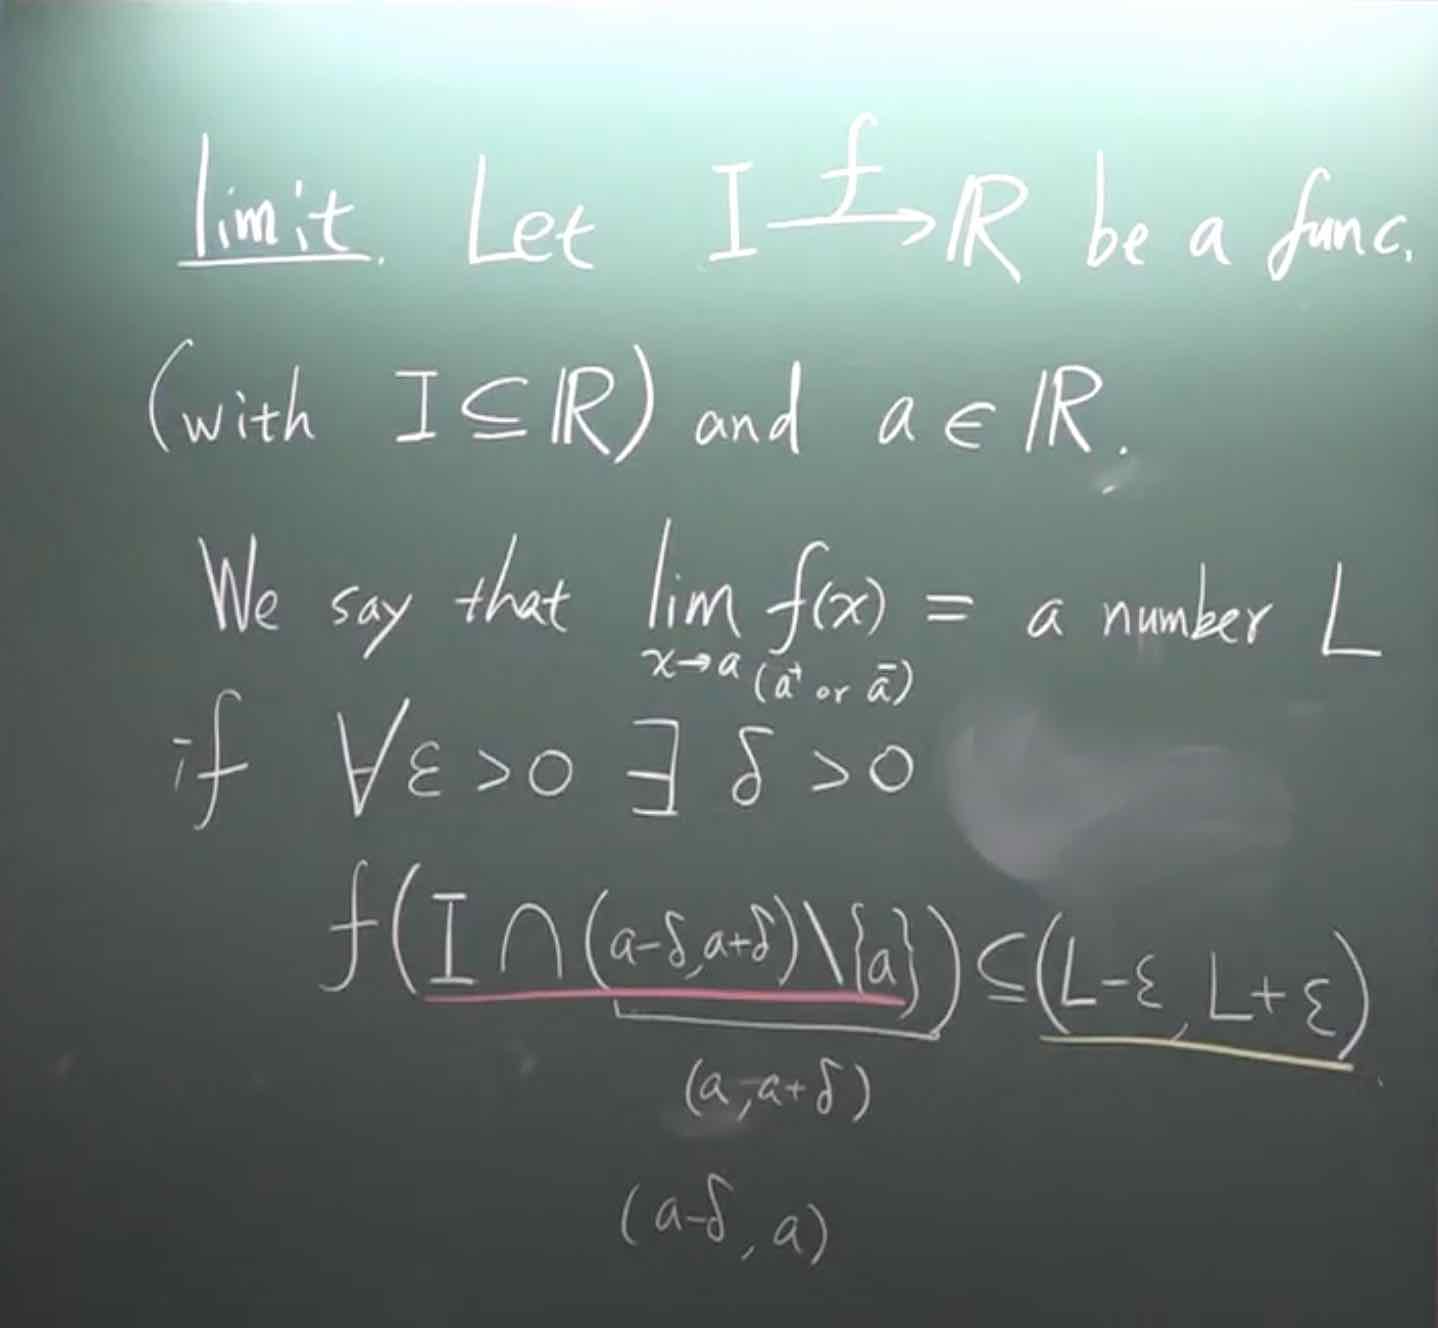 limit. Let I —f→ ℝ be a func.
(with I ⊆ ℝ) and a ∈ ℝ.
We say that lim f(x) = a number L
x→a (a⁺ or a⁻)
if ∀ε>0 ∃ δ>0
f(I∩(a-δ,a+δ)\{a})⊆(L-ε, L+ε)
(a,a+δ)
(a-δ, a)